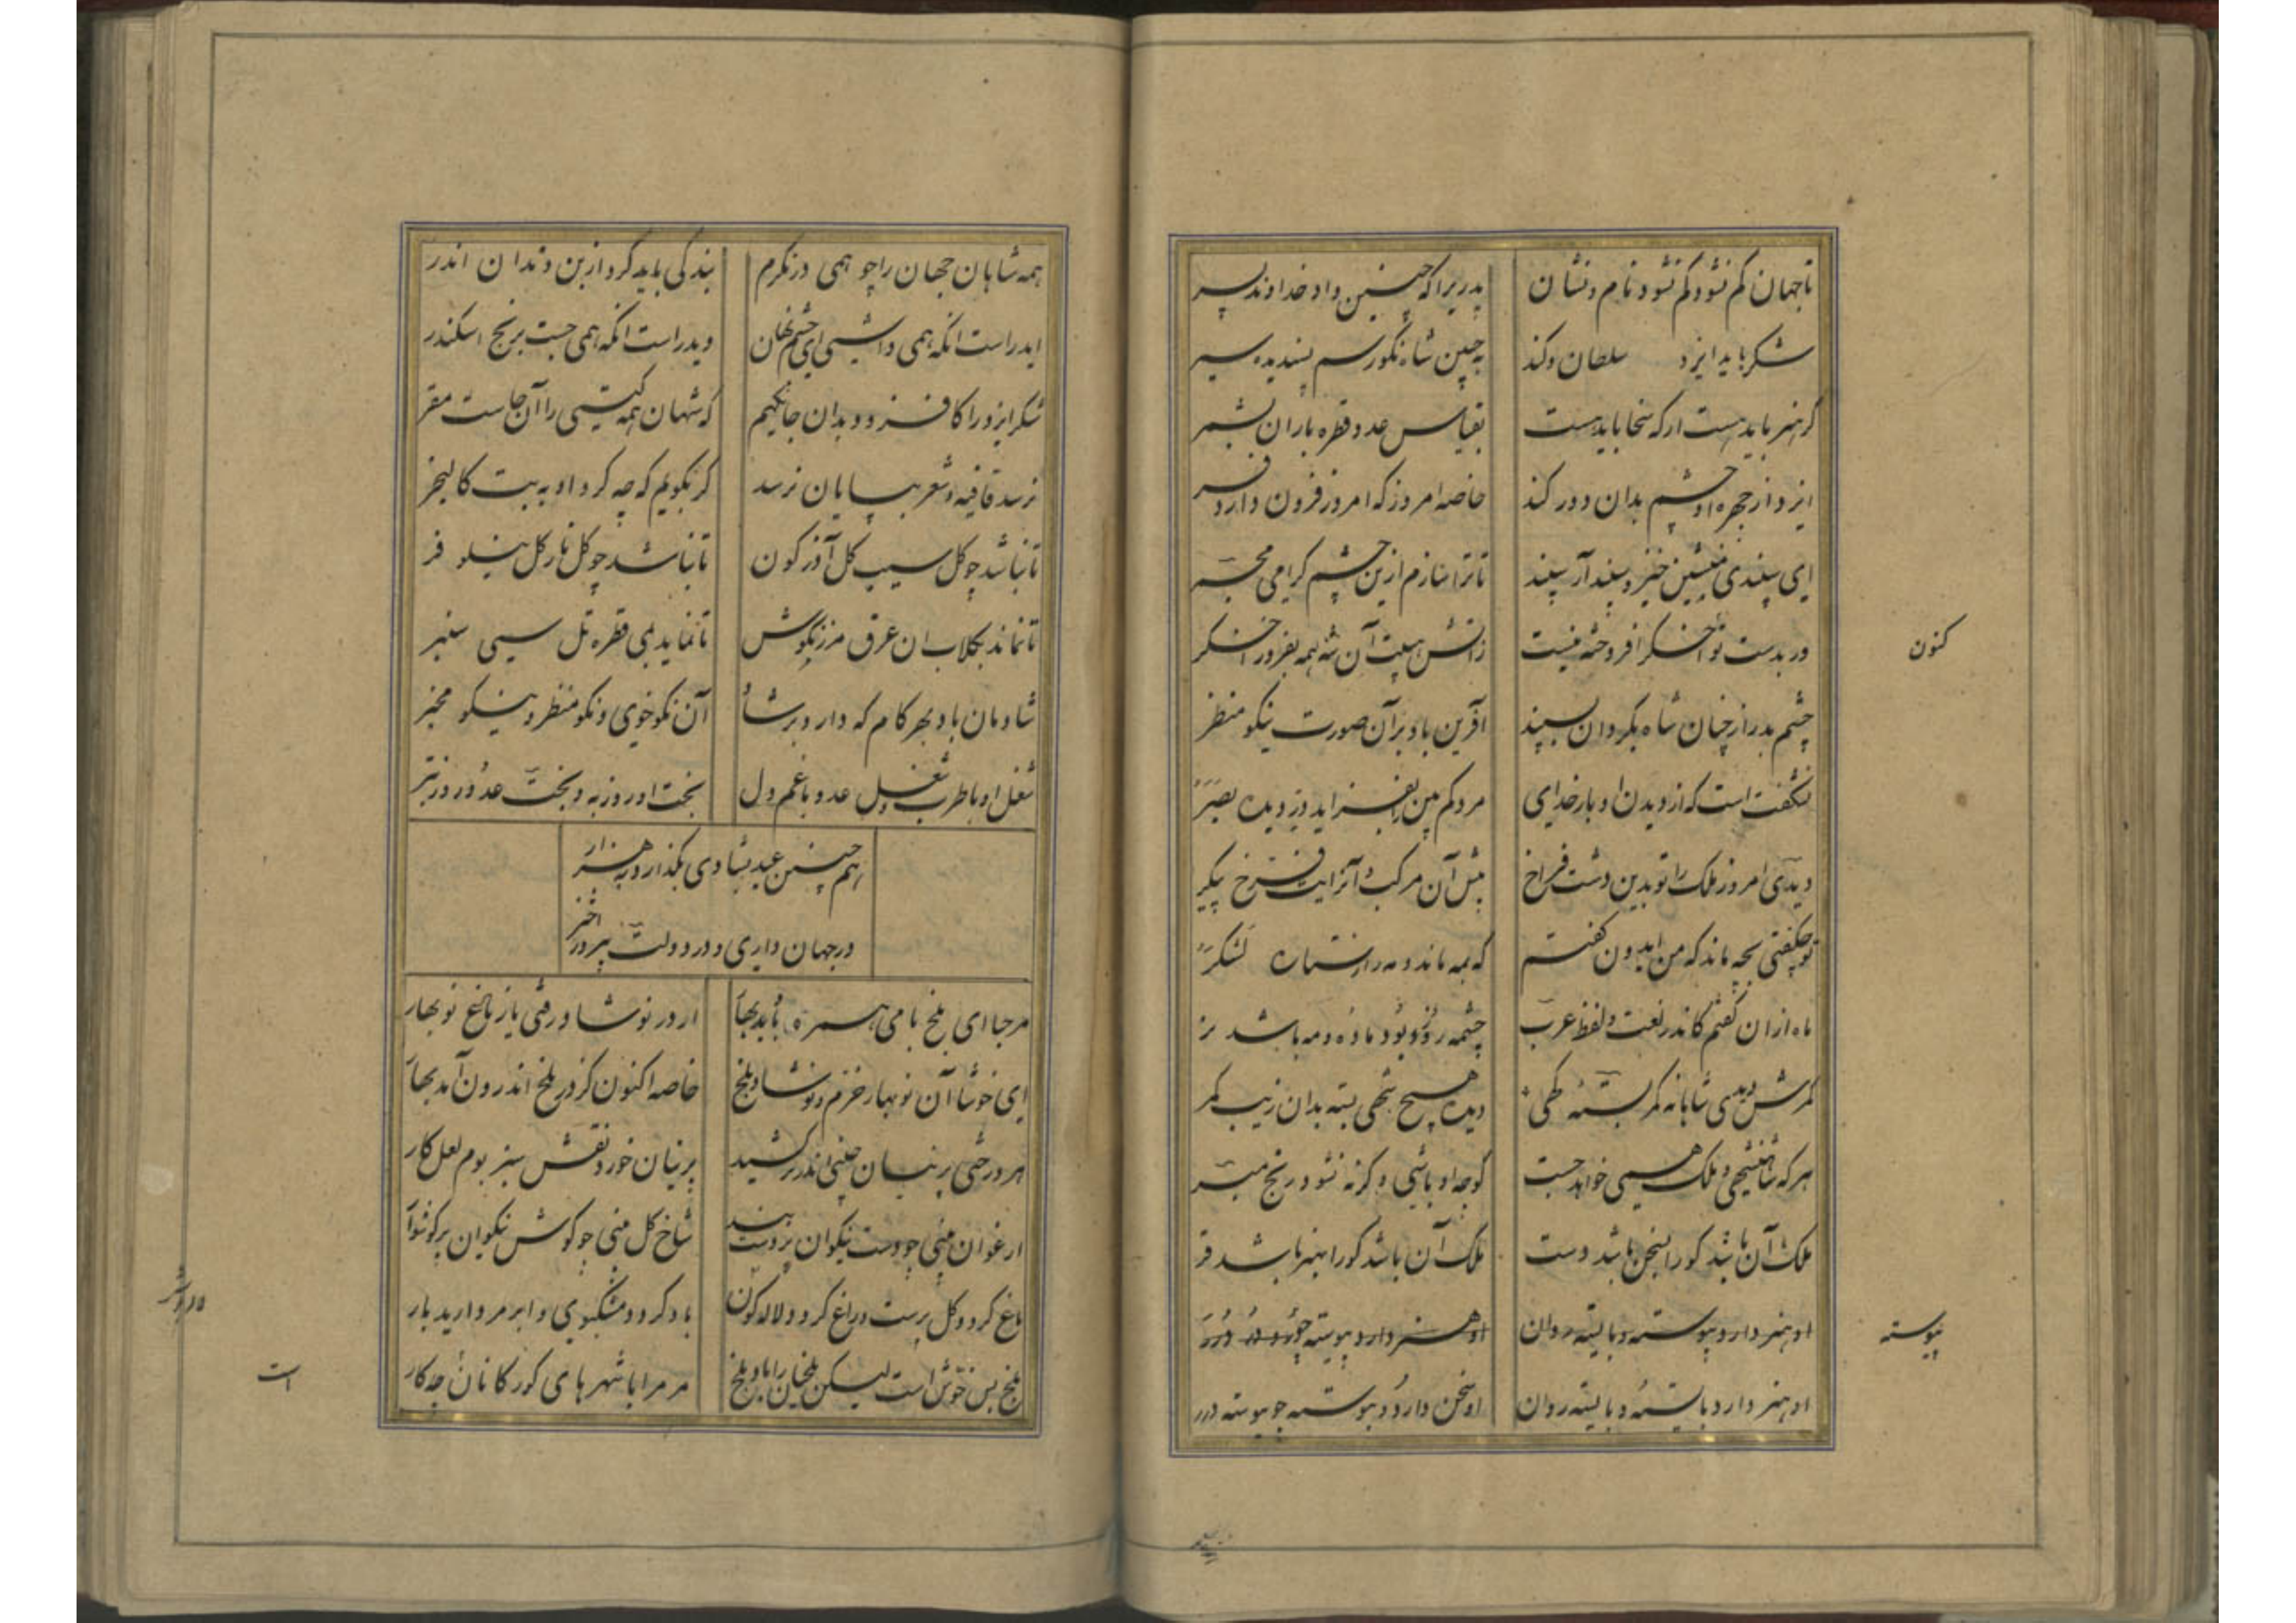 تا جهان کم نشود کم نشود نام و نشان پدریرا که چنین داد خداوند پسر
شکر باید ایزد سلطان وکند به چنین شاه نکورسم پسندیده سیر
گر هنر باید هست ار که سخا باید هست بقیاس عدد قطره باران بشمر
ایزد از چهره او چشم بدان دور کند خاصه امروز که امروز فزون دارد فر
ای سپندی منشین خیز و سپند آر سپند تا ترا سازم ازین چشم گرامی مجمر
ور بدست تو اخگر افروخته نیست زاتش هیبت آن شه همه بفروز اخگر
کنون
چشم بد را ز چنان شاه بگردان بسپند آفرین باد برآن صورت نیکو منظر
نشگفت است که از دیدن او بار خدای مردم بین بفزاید دیده بصر
دیدی امروز ملک را تو بدین دشت فراخ پیش آن مرکب و آن رایت فرخ پیکر
تو چگفتی بچه ماند که من ایدون گفتم که بمه ماند و مه را ز ستاره لشکر
ماه ازان گفتم کاندر لغت و لفظ عرب چشمه روز بود ماده و مه باشد نر
کمرش دیدی شاهانه کمر بسته کهی دیده هیچ شهی بسته بدان زیب کمر
هر که شاهنشهی و ملک همی خواهد جست گو چه او باشی و گرنه نشو و رنج مبر
ملک آن باشد کورا سخن باشد دست ملک آن باشد کورا هنر باشد فر
او هنر دارد پیوسته و بایسته روان او هنر دارد پیوسته چو
پیوسته
او هنر دارد بایسته و بایسته روان او سخن دارد و پیوسته چو پیوسته درر
همه شاهان جهان را چو همی درنگرم بندگی باید کرد از بن دندان اندر
ایدر است آنکه همی داشتی ای چشم نهان ویدر است آنکه همی جست برنج اسکندر
شکر ایزد را کافزود بدان جایگهیم که شهان همه گیتی را آن جاست مقر
نرسد قافیه و شعر بپایان نرسد گر بگویم که چه کرد او به بت کالنجر
تا نباشد چو گل سیب گل آذرگون تا نباشد چو گل نار گل نیلوفر
تا نماند بگلاب آن عرق مرزنگوش تا نماید قطره تل سیسنبر
شادمان باد و بهر کام که دارد برساد آن نکوخوی و نکو منظر و نیکو مخبر
شغل او با طرب و شغل عدو با غم دل بخت او روز به و بخت عدو روز بتر
هم چنین عید بشادی بگذارد به هزار
در جهان داری و در دولت پیروز اختر
مرحبا ای بلخ بامی همره باد بهار از در نوشاد رفتی یا ز باغ نوبهار
ای خوشا آن نوبهار خرم و نوشاد بلخ خاصه اکنون کز در بلخ اندرون آمد بهار
هر درختی پرنیان چینی اندر سر کشید پرنیان خورد نقش سبز بوم لعل کار
ارغوان بینی چو دست نیکوان پر دست بند شاخ گل بینی چو گوش نیکوان پر گوشوار
باغ گردد گل پرست و راغ گردد لاله گون باد گردد مشکبوی و ابر مروارید بار
بلخ بس خوش است لیکن بلخیان را باد بلخ مر مرا با شهرهای گوزگانان چه کار
است